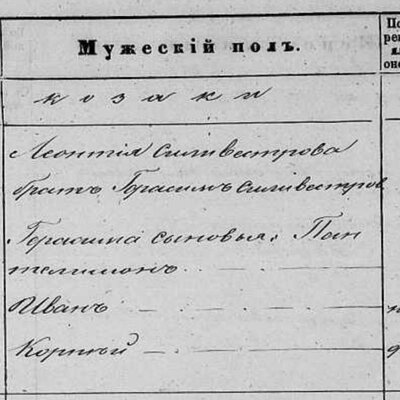 Мужескій полъ.
козаки
Леонтія Силивестрова
братъ Герасимъ Силивестров
Герасима сыновья: Пан
телимонъ
Иванъ
Корнѣй
По
ре